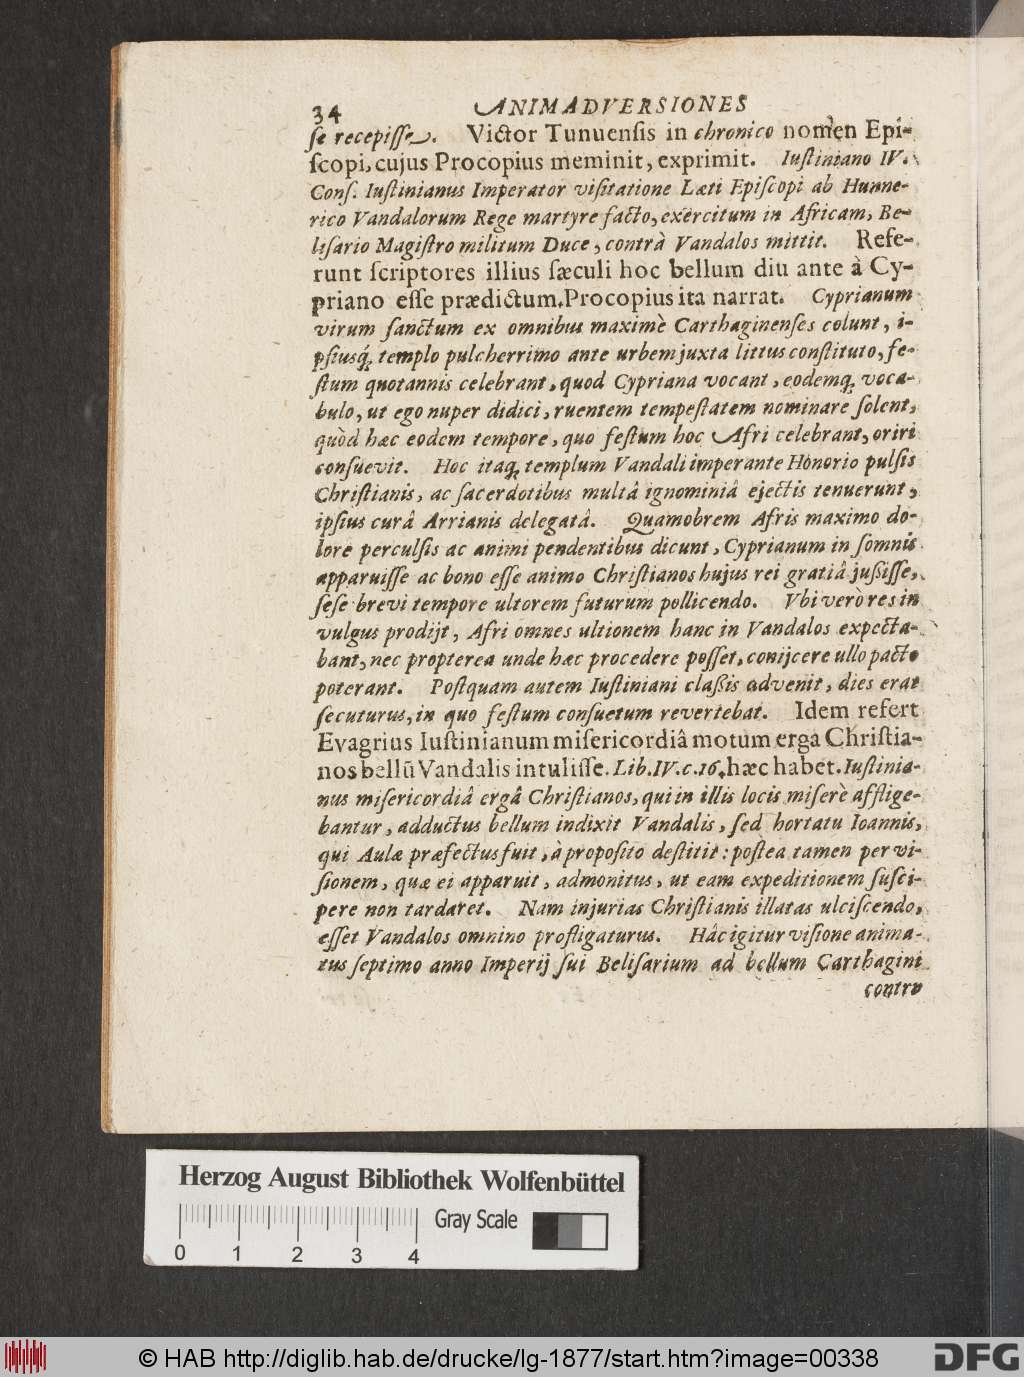 34 ANIMADVERSIONES
ſe recepiſſe. Victor Tunuenſis in chronico nomen Epi-
ſcopi, cujus Procopius meminit, exprimit. Iuſtiniano IV.
Conſ. Iuſtinianus Imperator viſitatione Læti Epiſcopi ab Hunne-
rico Vandalorum Rege martyre facto, exercitum in Africam, Be-
liſario Magiſtro militum Duce, contrà Vandalos mittit. Refe-
runt ſcriptores illius ſæculi hoc bellum diu ante à Cy-
priano eſſe prædictum. Procopius ita narrat. Cyprianum
virum ſanctum ex omnibus maximè Carthaginenſes colunt, i-
pſiusq́; templo pulcherrimo ante urbem juxta littus conſtituto, fe-
ſtum quotannis celebrant, quod Cypriana vocant, eodemq; voca-
bulo, ut ego nuper didici, ruentem tempeſtatem nominare ſolent,
quòd hæc eodem tempore, quo feſtum hoc Afri celebrant, oriri
conſuevit. Hoc itaq; templum Vandali imperante Honorio pulſis
Chriſtianis, ac ſacerdotibus multâ ignominiâ ejectis tenuerunt,
ipſius curâ Arrianis delegatâ. Quamobrem Afris maximo do-
lore perculſis ac animi pendentibus dicunt, Cyprianum in ſomnis
apparuiſſe ac bono eſſe animo Chriſtianos hujus rei gratiâ juſſiſſe,
ſeſe brevi tempore ultorem futurum pollicendo. Vbi verò res in
vulgus prodijt, Afri omnes ultionem hanc in Vandalos expecta-
bant, nec propterea unde hæc procedere poſſet, conijcere ullo pacto
poterant. Poſtquam autem Iuſtiniani claſſis advenit, dies erat
ſecuturus, in quo feſtum conſuetum revertebat. Idem refert
Evagrius Iuſtinianum miſericordiâ motum erga Chriſtia-
nos bellū Vandalis intuliſſe. Lib. IV. c. 16. hæc habet. Iuſtinia-
nus miſericordiâ ergâ Chriſtianos, qui in illis locis miſerè afflige-
bantur, adductus bellum indixit Vandalis, ſed hortatu Ioannis,
qui Aulæ præfectus fuit, à propoſito deſtitit: poſtea tamen per vi-
ſionem, quæ ei apparuit, admonitus, ut eam expeditionem ſuſci-
pere non tardaret. Nam injurias Chriſtianis illatas ulciſcendo,
eſſet Vandalos omnino profligaturus. Hâc igitur viſione anima-
tus ſeptimo anno Imperij ſui Beliſarium ad bellum Carthagini
contra
Herzog August Bibliothek Wolfenbüttel
Gray Scale
0 1 2 3 4
© HAB http://diglib.hab.de/drucke/lg-1877/start.htm?image=00338
DFG